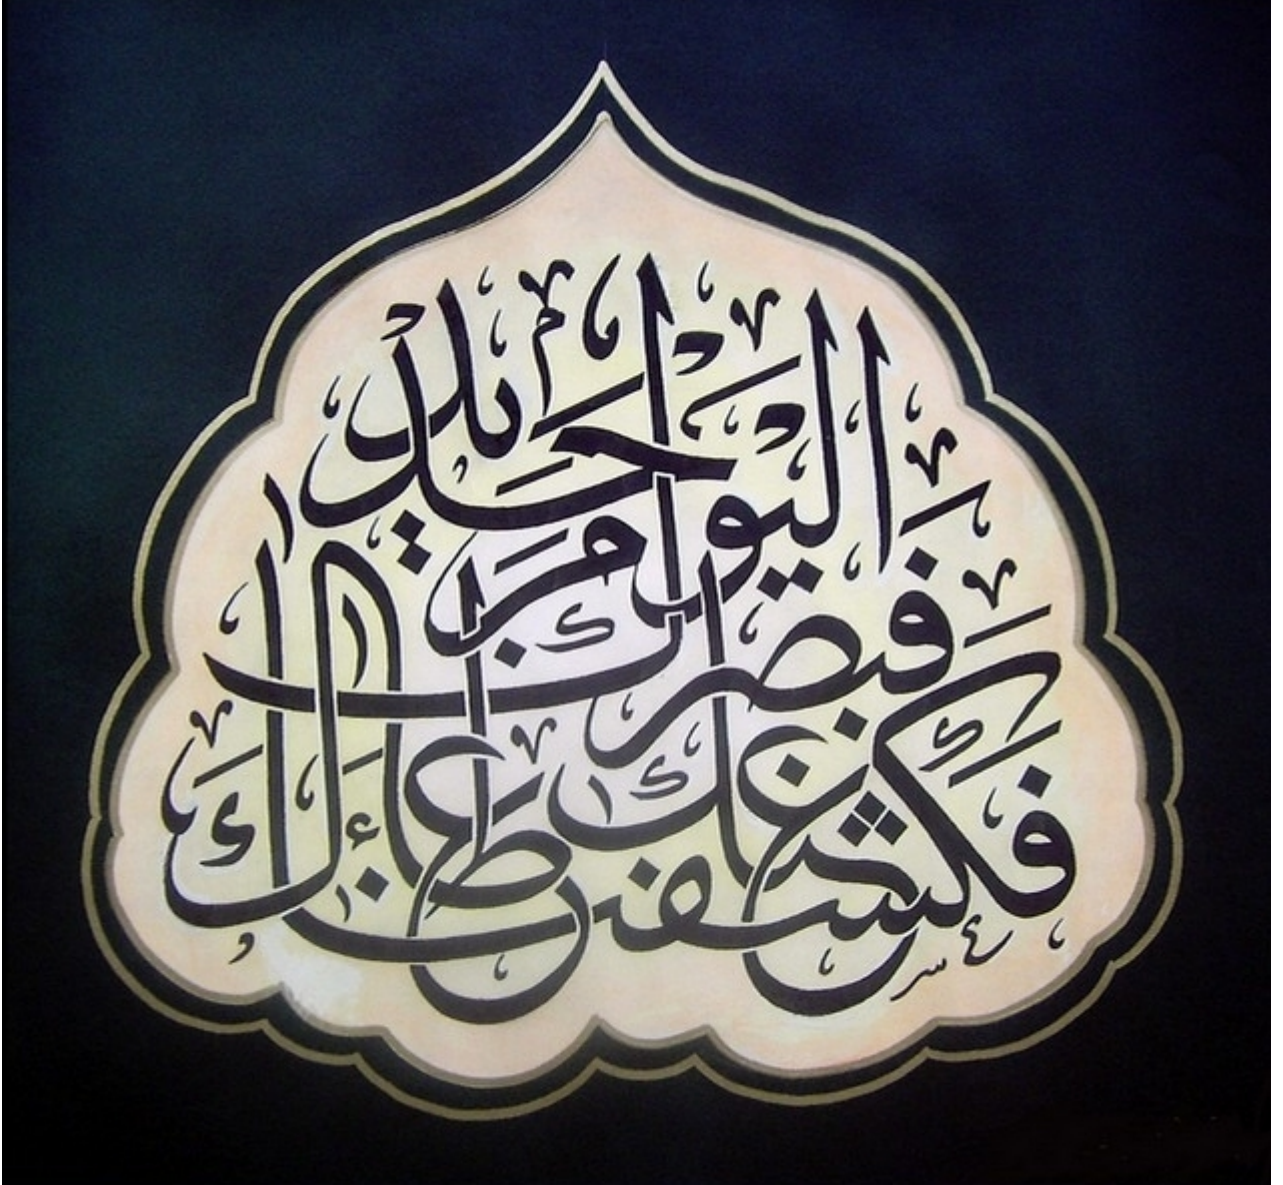 فكشفنا عنك غطاءك
فبصرك
اليوم حديد